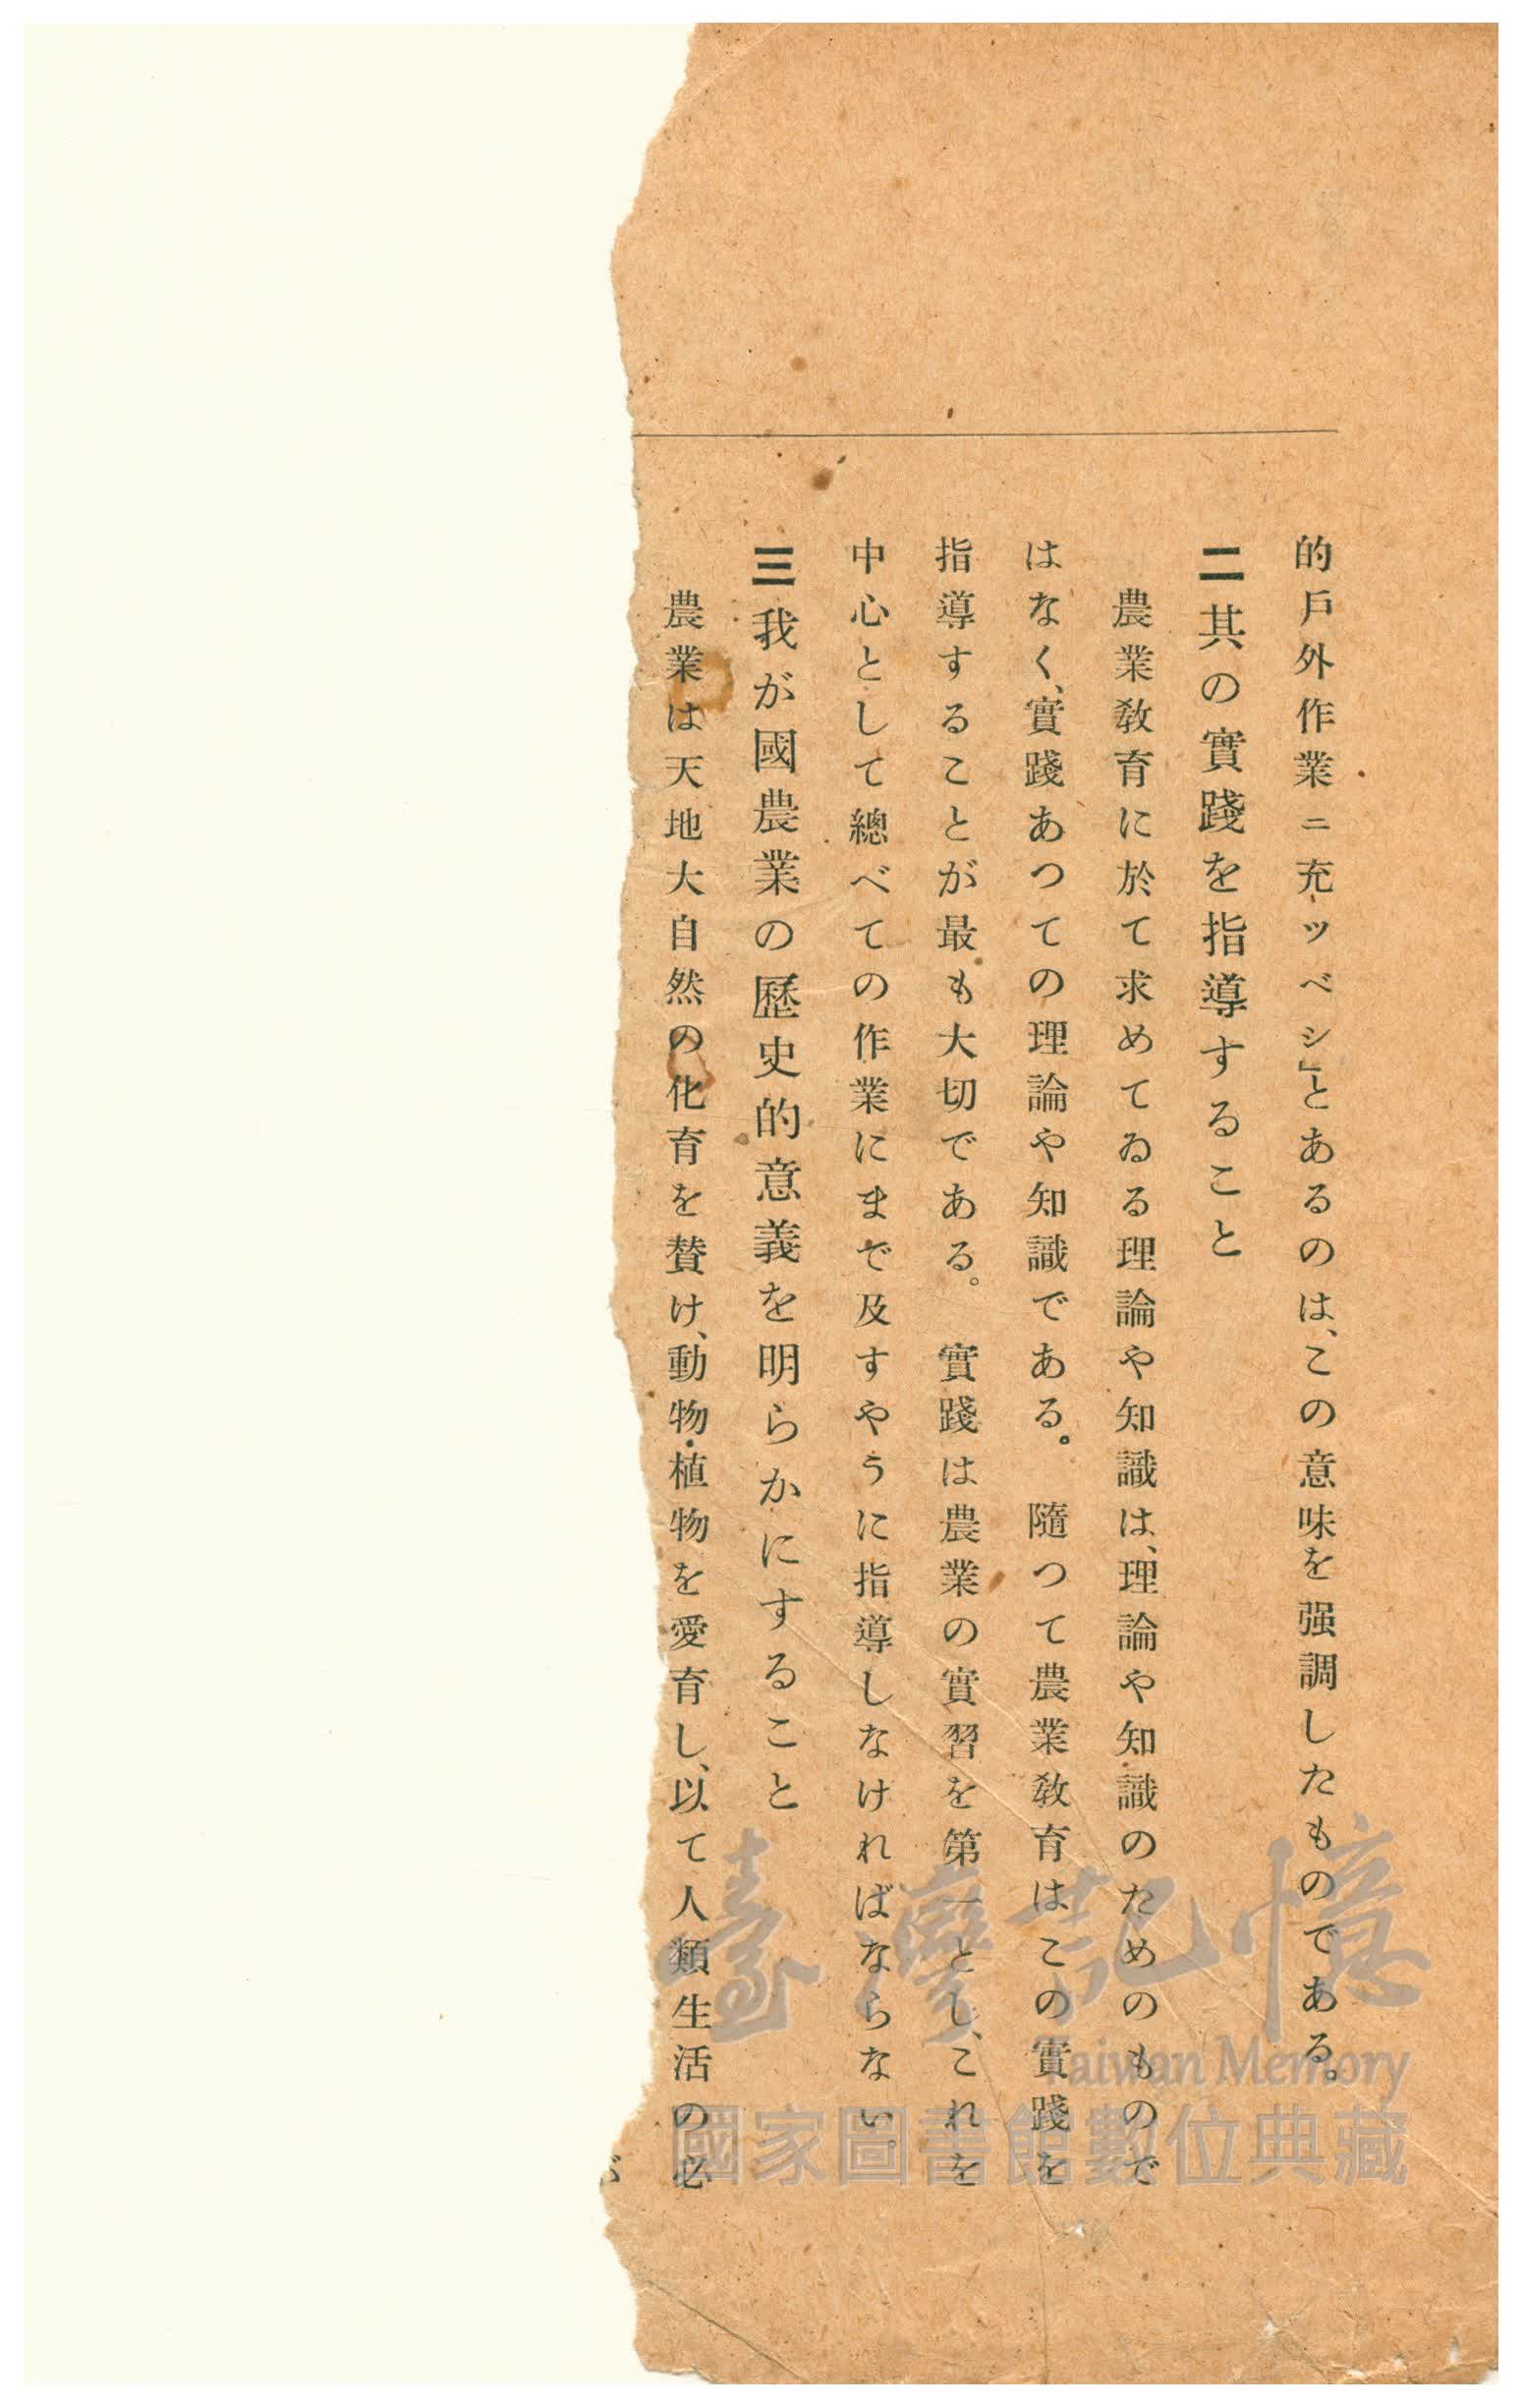 的戶外作業ニ充ツベシ』とあるのは、この意味を强調したものである。
二 其の實踐を指導すること
農業敎育に於て求めてゐる理論や知識は、理論や知識のためのもので
はなく、實踐あつての理論や知識である。 隨つて農業敎育はこの實踐を
指導することが最も大切である。 實踐は農業の實習を第一とし、これを
中心として總べての作業にまで及すやうに指導しなければならない。
三 我が國農業の歷史的意義を明らかにすること
農業は天地大自然の化育を賛け、動物・植物を愛育し、以て人類生活の必
臺灣記憶
Taiwan Memory
國家圖書館數位典藏